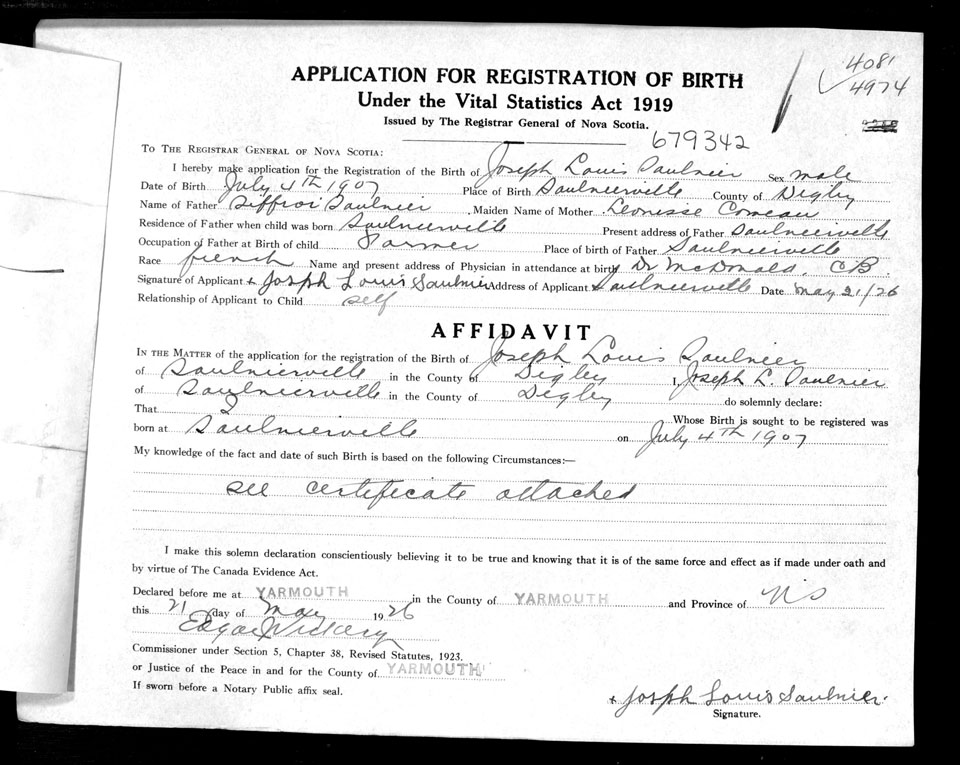 4081
4974
APPLICATION FOR REGISTRATION OF BIRTH
Under the Vital Statistics Act 1919
Issued by The Registrar General of Nova Scotia.
679342
TO THE REGISTRAR GENERAL OF NOVA SCOTIA:
I hereby make application for the Registration of the Birth of Joseph Louis Saulnier Sex male
Date of Birth July 4th 1907 Place of Birth Saulnierville County of Digby
Name of Father Siffroi Saulnier Maiden Name of Mother Leonisse Comeau
Residence of Father when child was born Saulnierville Present address of Father Saulnierville
Occupation of Father at Birth of child Farmer Place of birth of Father Saulnierville
Race french Name and present address of Physician in attendance at birth Dr McDonald. CB.
Signature of Applicant x Joseph Louis Saulnier Address of Applicant Saulnierville Date May 21/26
Relationship of Applicant to Child self
AFFIDAVIT
IN THE MATTER of the application for the registration of the Birth of Joseph Louis Saulnier
of Saulnierville in the County of Digby I, Joseph L. Saulnier
of Saulnierville in the County of Digby do solemnly declare:
That I Whose Birth is sought to be registered was
born at Saulnierville on July 4th 1907
My knowledge of the fact and date of such Birth is based on the following Circumstances:—
see certificate attached
I make this solemn declaration conscientiously believing it to be true and knowing that it is of the same force and effect as if made under oath and
by virtue of The Canada Evidence Act.
Declared before me at YARMOUTH in the County of YARMOUTH and Province of NS
this 21 day of May 1926
Edgar Vickery
Commissioner under Section 5, Chapter 38, Revised Statutes, 1923,
or Justice of the Peace in and for the County of YARMOUTH
If sworn before a Notary Public affix seal.
x Joseph Louis Saulnier
Signature.